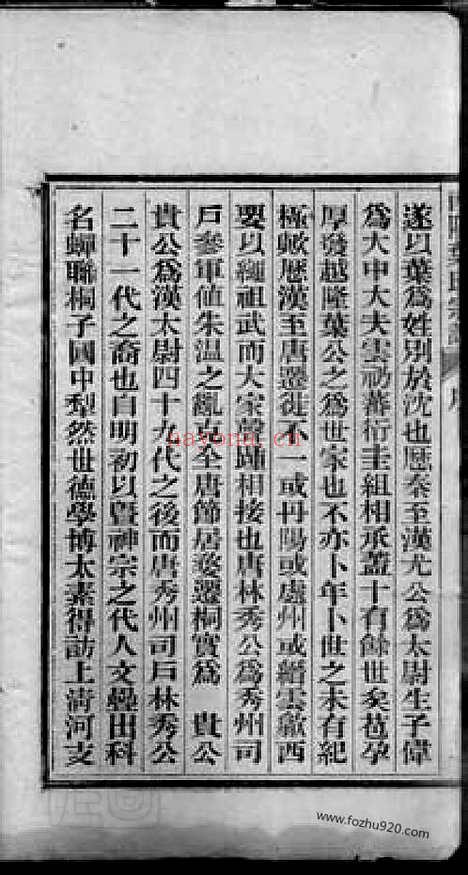 遂以葉爲姓別於沈也歷秦至漢尤公爲太尉生子偉
爲大中大夫雲礽蕃衍圭組相承蓋十有餘世矣苞孕
厚發越隆葉公之爲世家也不亦卜年卜世之未有紀
極歟歷漢至唐遷徙不一或丹陽或處州或縉雲歙西
要以繩祖武而大家聲踵相接也唐林秀公爲秀州司
戶參軍値朱温之亂克全唐節居婺遷桐實爲 貴公
貴公爲漢太尉四十九代之後而唐秀州司戶林秀公
二十一代之裔也自明初以曁神宗之代人文疊出科
名蟬聯桐子國中犁然世德學博太素得訪上淸河支
nayona.cn
www.fozhu920.com